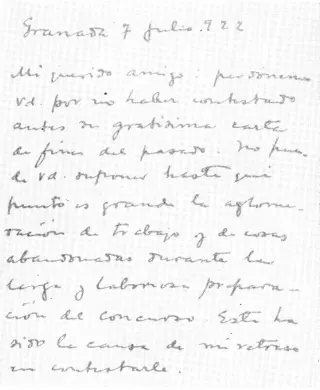 Granada 7 julio. 922
Mi querido amigo: perdóneme
Vd. por no haber contestado
antes su gratísima carta
de fines del pasado. No pue-
de Vd. suponer hasta qué
punto es grande la aglome-
ración de trabajo y de cosas
abandonadas durante la
larga y laboriosa prepara-
ción del concurso. Esta ha
sido la causa de mi retraso
en contestarle.